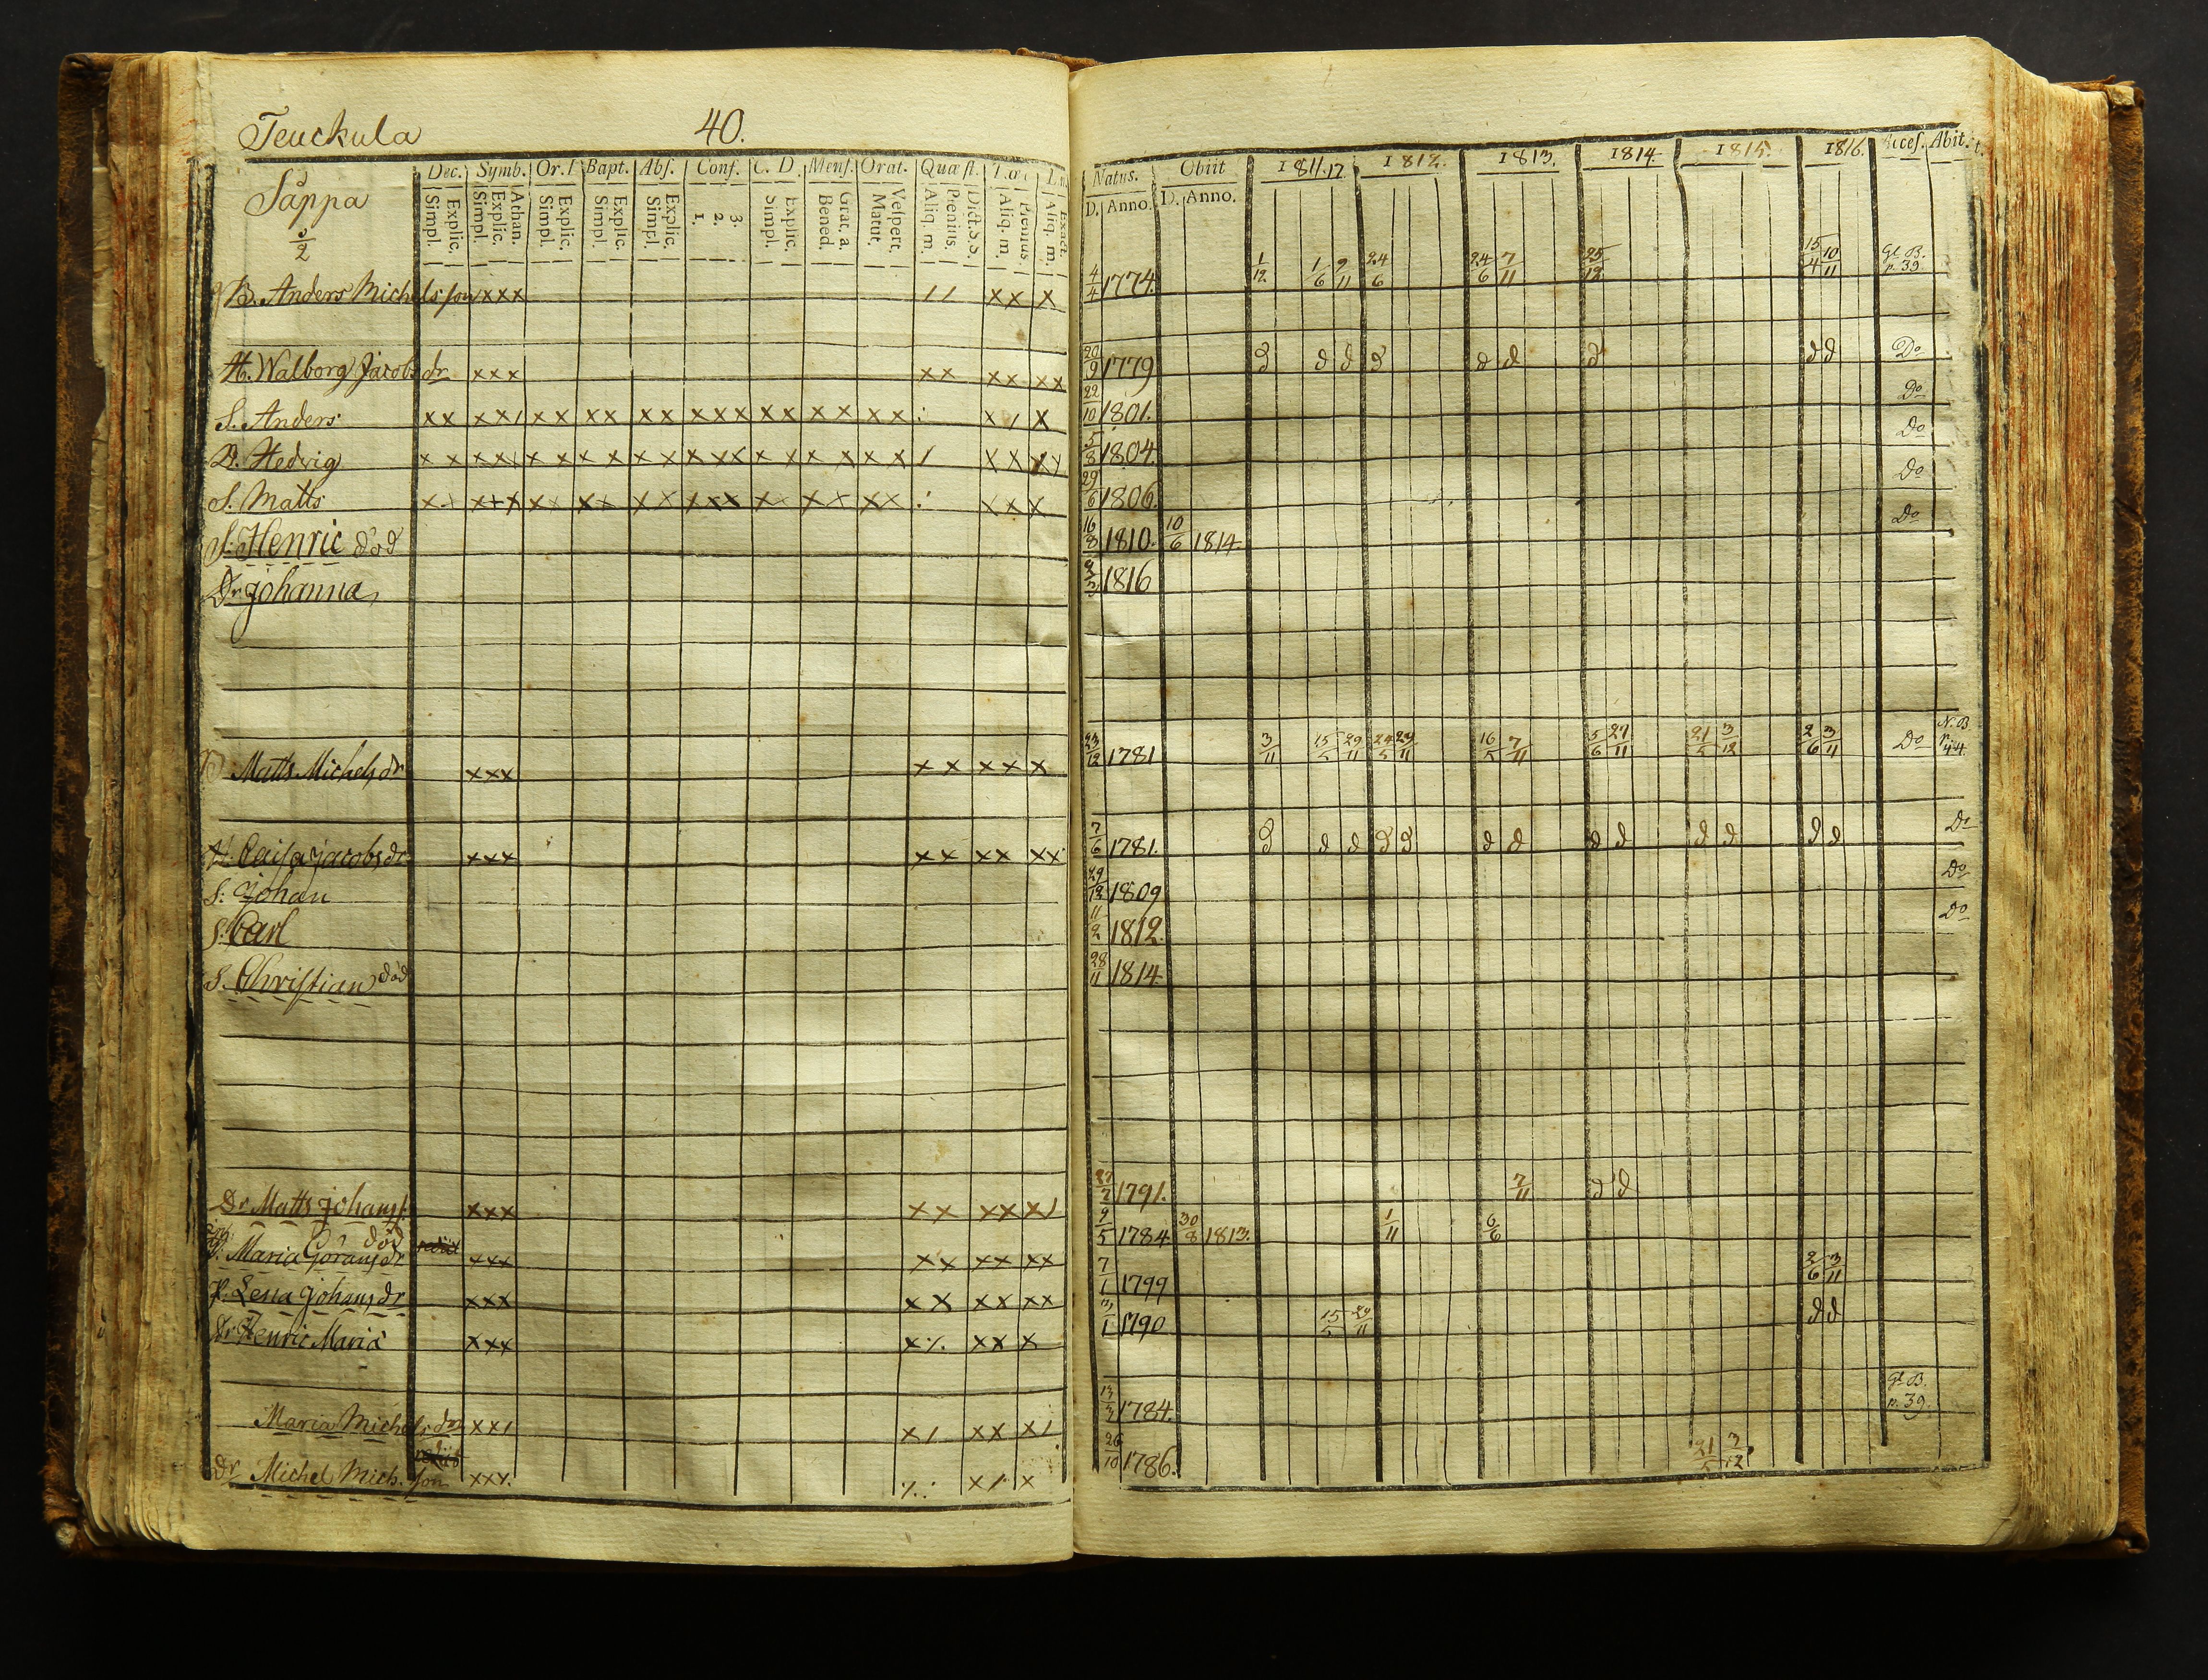 Teuckula 40.
Såppa
Dec. Symb. Or. Bapt. Abs. Conf. C. D. Mens. Orat. Quæst.
Explic. Simpl. Athan. Explic. Simpl. Explic. Simpl. Explic. Simpl. Explic. Simpl. 3. 2. 1. Explic. Simpl. Grat. a. Bened. Vespert. Matut. Plenius. Aliq. m. Dict. S. S. Plenius. Aliq. m. Exact. Aliq. m.
B. Anders Michelsson xxx // xx x
H. Walborg Jacobsdr xxx xx xx xx
S. Anders xx xx/ xx xx xx xxx xx xx xx : x/ x
D. Hedvig
S. Matts
S. Henric död
Dr Johanna
Matts Michelsdr xxx xx xxx x
H. Caisa Jacobsdr xxx xx xx xx
S. Johan
S. Carl
S. Christian död
Dr Matts Johanss. xxx xx xx x/
död
Maria Göransdr xxx xx xx xx
P. Lena Johansdr xxx xx xx xx
Dr Henric Maria xxx x/. xx x
Maria Michelsdr xx/ x/ xx x/
Dr Michel Mich.son xxx
Natus. Obiit 1811.12 1812. 1813. 1814. 1815. 1816. Acces. Abit.
D. Anno. D. Anno.
4/4 1774. 1/12 1/6 9/11 24/6 24/6 7/11 25/12 15/4 10/11 Gl. B. p. 39
20/9 1779 d d d d d d d d d Do
22/10 1801. Do
5/8 1804. Do
29/6 1806. Do
16/8 1810. 10/6 1814. Do
1816
23/12 1781 3/11 15/5 29/11 24/5 29/11 16/5 7/11 5/6 27/11 21/5 3/12 2/6 3/11 Do N. B. p. 44.
7/6 1781. d d d d d d d d d d d d d Do
29/12 1809 Do
11/2 1812. Do
28/11 1814.
27/7 1791. 7/11 d d
9/5 1784 30/8 1813. 1/11 6/6
7/1 1799 2/6 3/11
1790 15/5 29/11 d d
13/3 1784. Gl. B. p. 39.
26/10 1786. 21/5